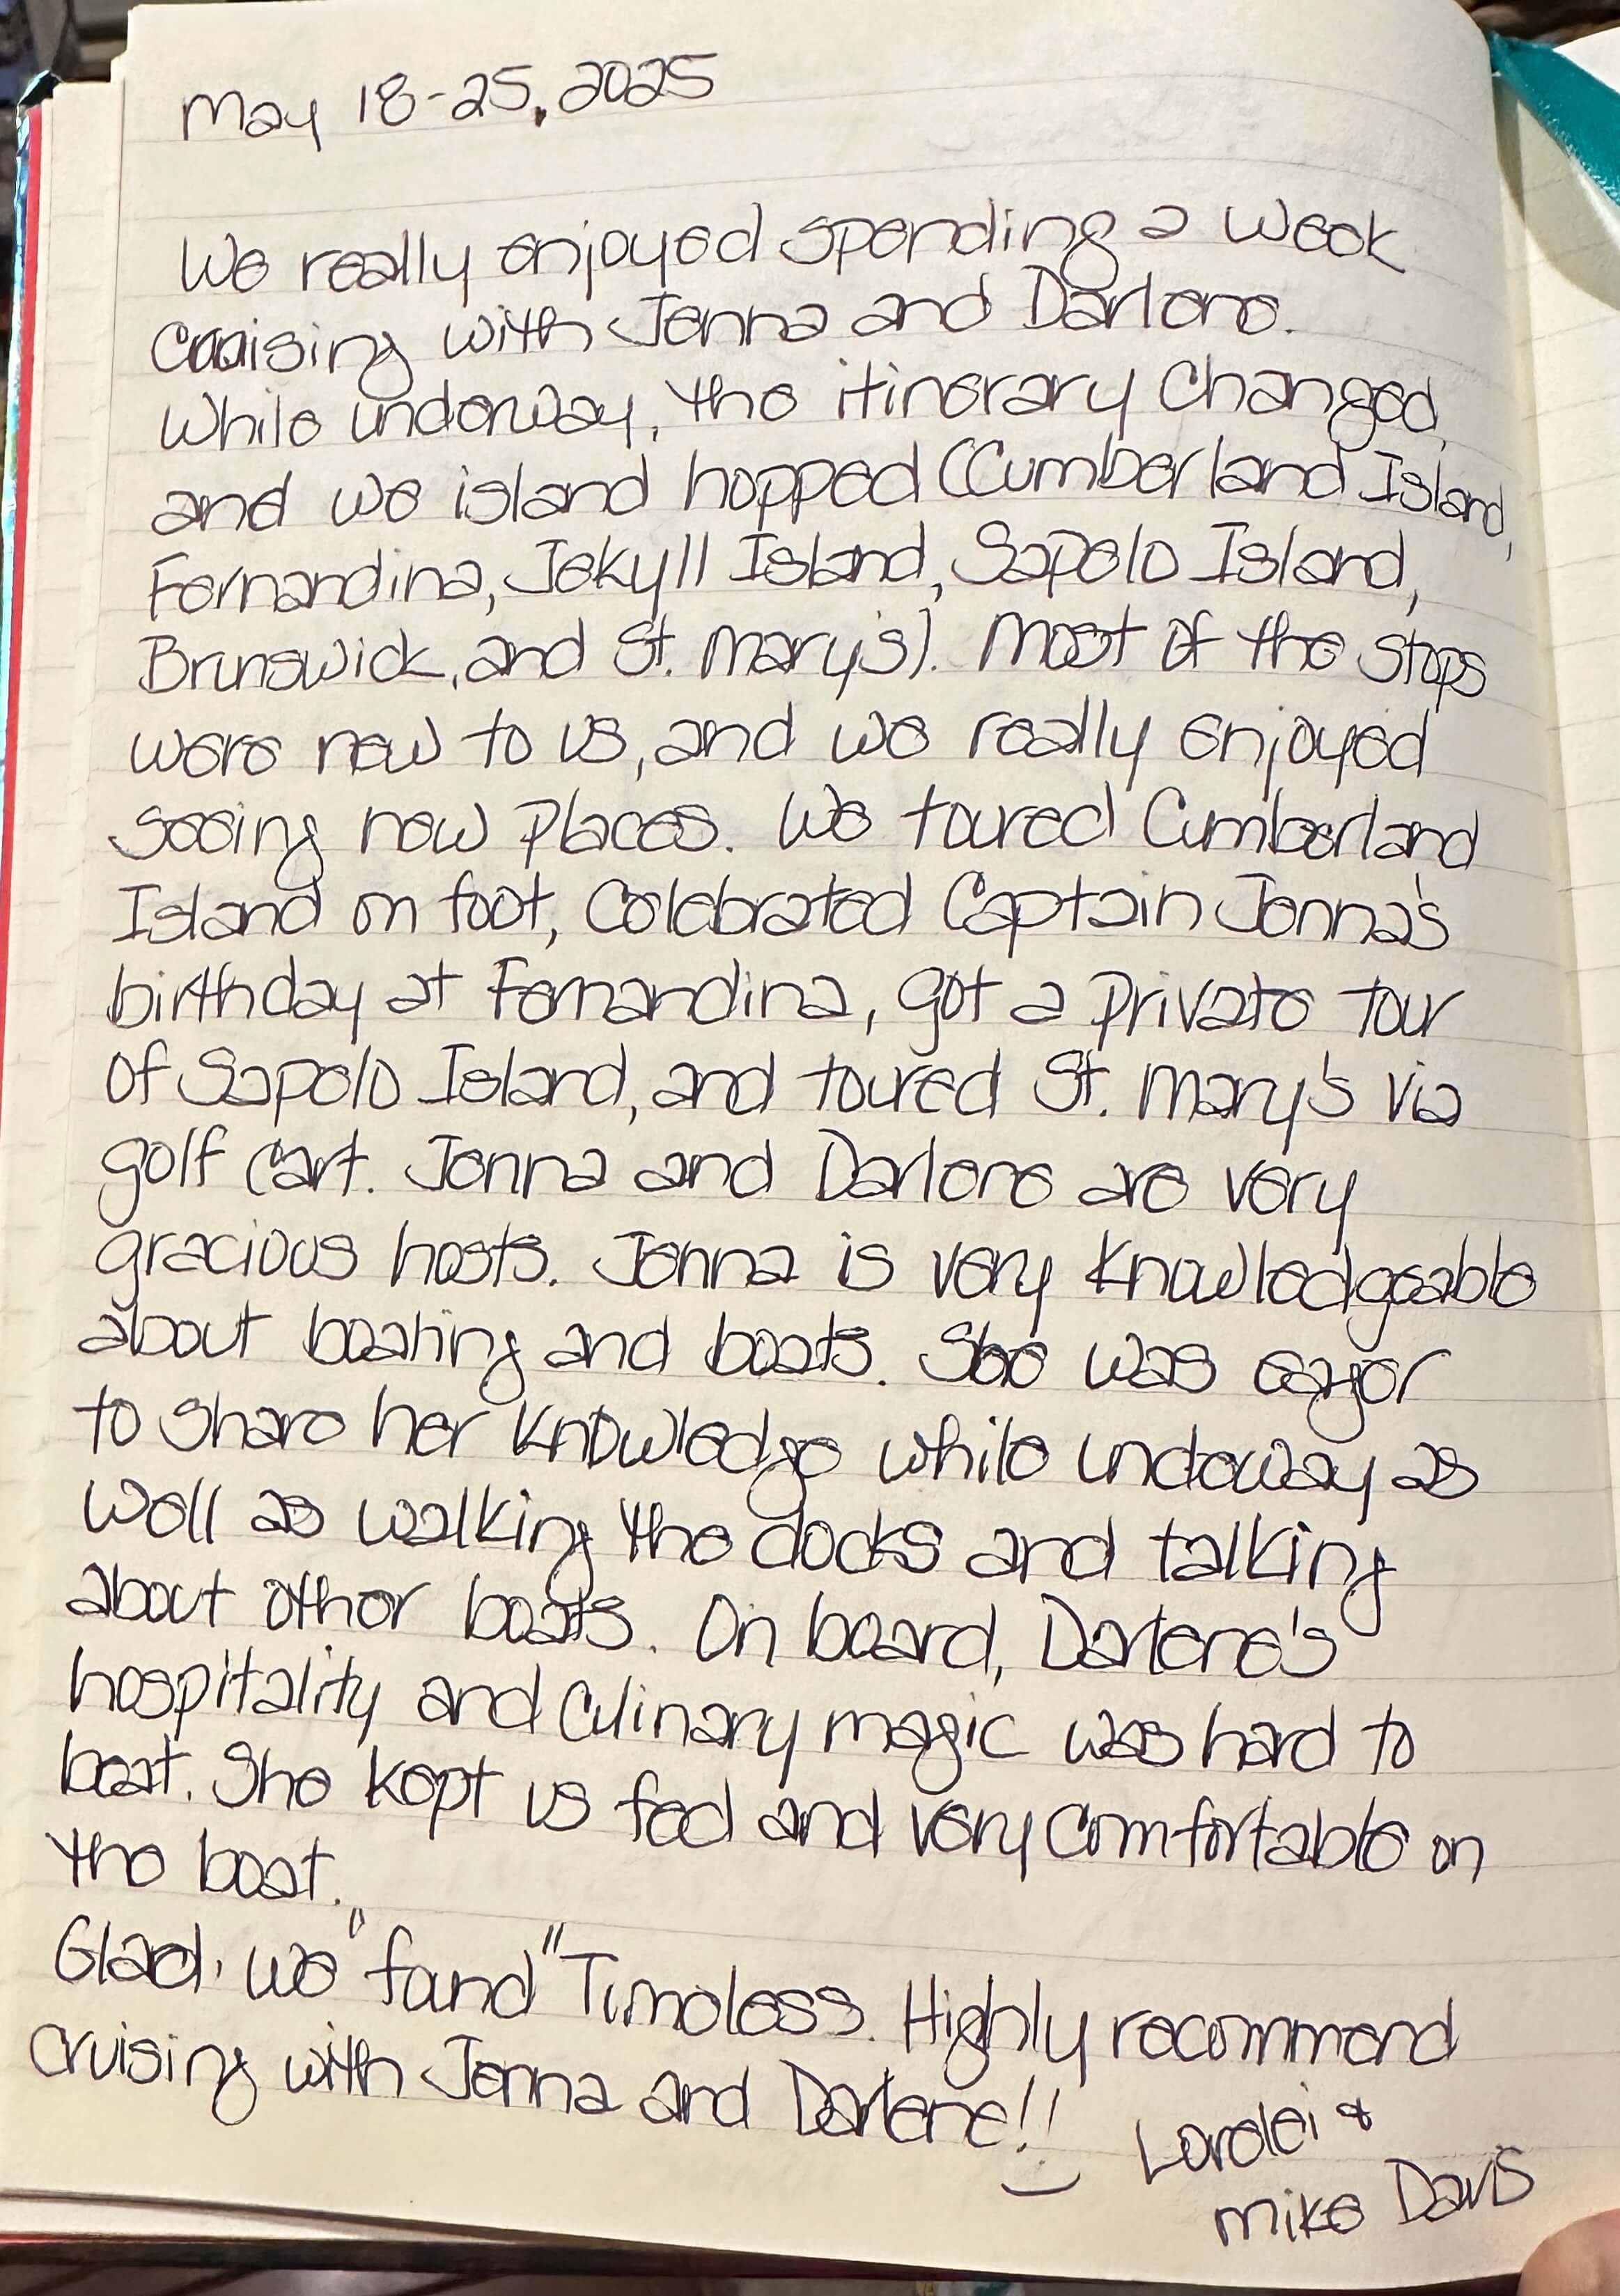 May 18-25, 2025
We really enjoyed spending a week
cruising with Jenna and Darlene.
While underway, the itinerary changed,
and we island hopped (Cumberland Island,
Fernandina, Jekyll Island, Sapelo Island,
Brunswick, and St. Mary's). Most of the stops
were new to us, and we really enjoyed
seeing new places. We toured Cumberland
Island on foot, celebrated Captain Jenna's
birthday at Fernandina, got a private tour
of Sapelo Island, and toured St. Mary's via
golf cart. Jenna and Darlene are very
gracious hosts. Jenna is very knowledgeable
about boating and boats. She was eager
to share her knowledge while underway as
well as walking the docks and talking
about other boats. On board, Darlene's
hospitality and culinary magic was hard to
beat. She kept us fed and very comfortable on
the boat.
Glad we "found" Timeless. Highly recommend
cruising with Jenna and Darlene!!
Lorelei &
Mike Davis